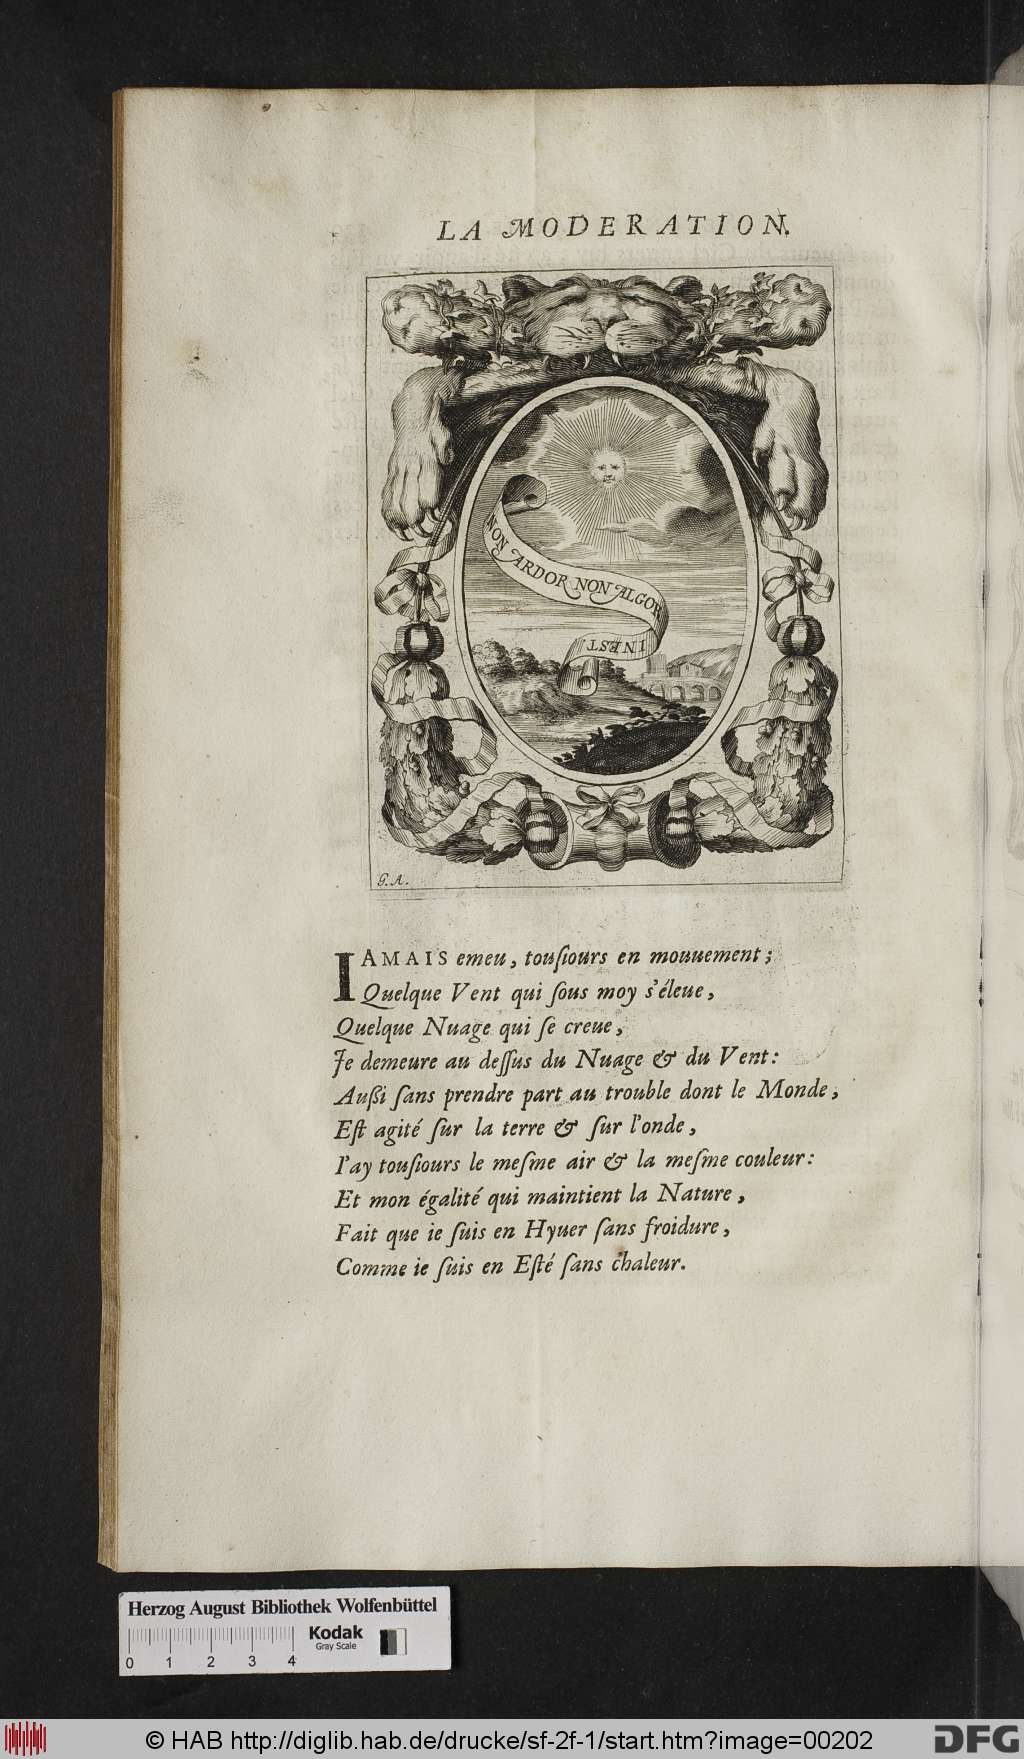 LA MODERATION.
NON ARDOR NON ALGOR
INEST
G. A.
IAMAIS emeu, touſiours en mouuement;
Quelque Vent qui ſous moy s'éleue,
Quelque Nuage qui ſe creue,
Je demeure au deſſus du Nuage & du Vent:
Außi ſans prendre part au trouble dont le Monde,
Eſt agité ſur la terre & ſur l'onde,
I'ay touſiours le meſme air & la meſme couleur:
Et mon égalité qui maintient la Nature,
Fait que ie ſuis en Hyuer ſans froidure,
Comme ie ſuis en Eſté ſans chaleur.
Herzog August Bibliothek Wolfenbüttel
Kodak
Gray Scale
0 1 2 3 4
© HAB http://diglib.hab.de/drucke/sf-2f-1/start.htm?image=00202
DFG